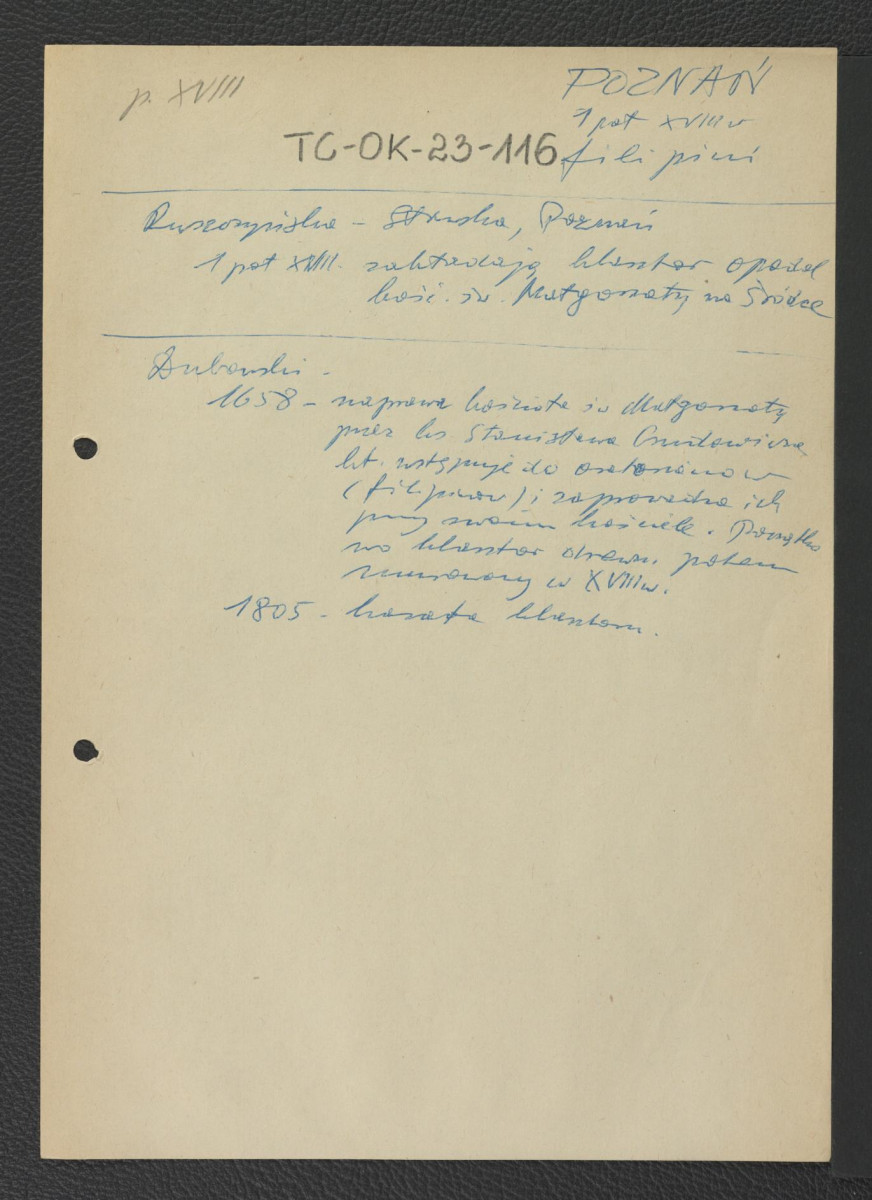 p. XVIII
POZNAŃ
1 poł XVIII w
TC-OK-23-116
filipini
Ruszczyńska - Sławska, Poznań
1 poł XVIII. zakładają klasztor opodal
kość. św. Małgorzaty na Śródce
1658 - naprawa kościoła św Małgorzaty
przez ks. Stanisława
kt. wstępuje do oratorianów
(filipinów) i zaprowadza ich
przy swoim kościele. Początko
wo klasztor drewn. potem
murowany w XVIII w.
1805 - kasata klasztoru.